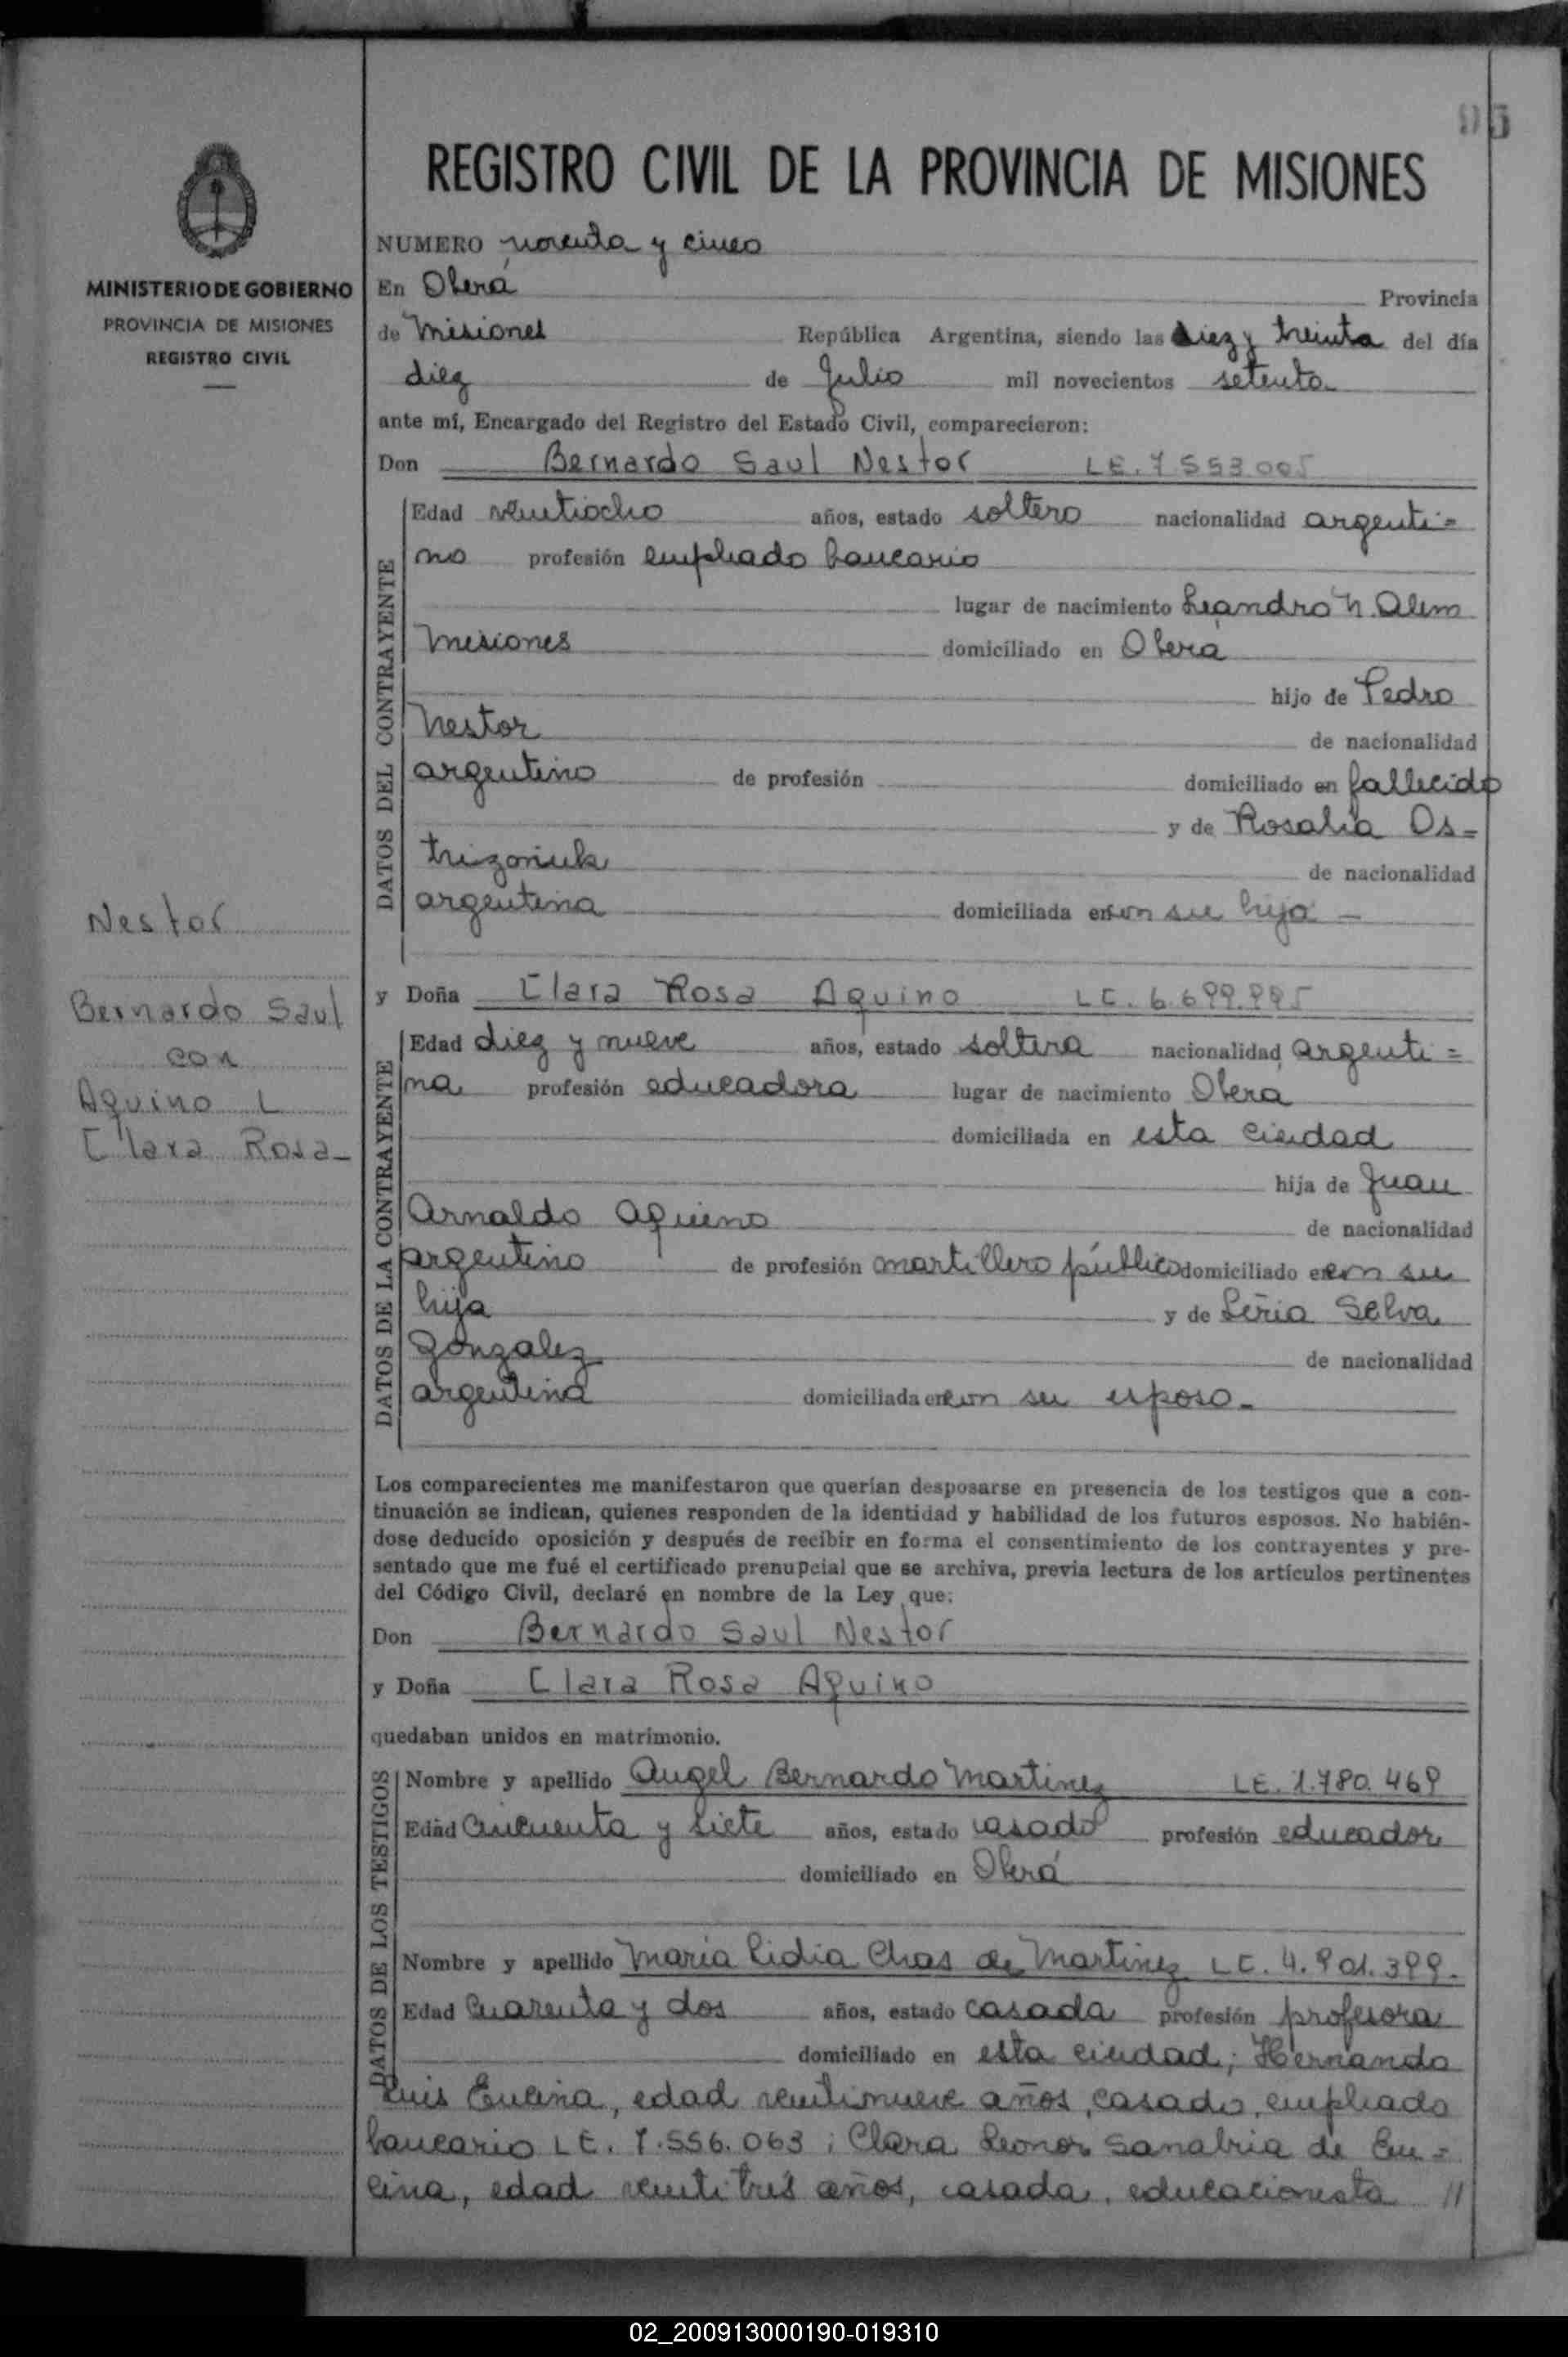 95
REGISTRO CIVIL DE LA PROVINCIA DE MISIONES
MINISTERIO DE GOBIERNO
PROVINCIA DE MISIONES
REGISTRO CIVIL
NUMERO noventa y cinco
En Oberá Provincia
de Misiones República Argentina, siendo las diez y treinta del día
diez de Julio mil novecientos setenta
ante mí, Encargado del Registro del Estado Civil, comparecieron:
Don Bernardo Saul Nestor LE. 7553005
DATOS DEL CONTRAYENTE
Edad veintiocho años, estado soltero nacionalidad argenti=
no profesión empleado bancario
lugar de nacimiento Leandro N. Alem
Misiones domiciliado en Oberá
hijo de Pedro
Nestor de nacionalidad
argentino de profesión domiciliado en fallecido
y de Rosalia Os=
trizoniuk de nacionalidad
argentina domiciliada en con su hijo -
Nestor
Bernardo Saul
con
Aquino
Clara Rosa-
y Doña Clara Rosa Aquino LC. 6.699.995
DATOS DE LA CONTRAYENTE
Edad diez y nueve años, estado soltera nacionalidad argenti=
na profesión educadora lugar de nacimiento Obera
domiciliada en esta ciudad
hija de Juan
Arnaldo Aquino de nacionalidad
argentino de profesión martillero público domiciliado en con su
hija y de Selva
Gonzalez de nacionalidad
argentina domiciliada en con su esposo -
Los comparecientes me manifestaron que querían desposarse en presencia de los testigos que a con-
tinuación se indican, quienes responden de la identidad y habilidad de los futuros esposos. No habién-
dose deducido oposición y después de recibir en forma el consentimiento de los contrayentes y pre-
sentado que me fué el certificado prenupcial que se archiva, previa lectura de los artículos pertinentes
del Código Civil, declaré en nombre de la Ley que:
Don Bernardo Saul Nestor
y Doña Clara Rosa Aquino
quedaban unidos en matrimonio.
DATOS DE LOS TESTIGOS
Nombre y apellido Angel Bernardo Martinez LE. 1.780.469
Edad Cincuenta y siete años, estado casado profesión educador
domiciliado en Oberá
Nombre y apellido Maria Lidia Chas de Martinez LC. 4.901.399.
Edad Cuarenta y dos años, estado casada profesión profesora
domiciliado en esta ciudad; Hernando
Luis Encina, edad veintinueve años, casado, empleado
bancario LE. 7.556.063; Clara Leonor Sanabria de En=
cina, edad veintitres años, casada, educacionista //
02_200913000190-019310